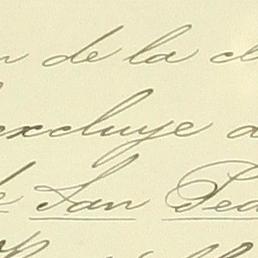 de la
excluye a
de San Ped